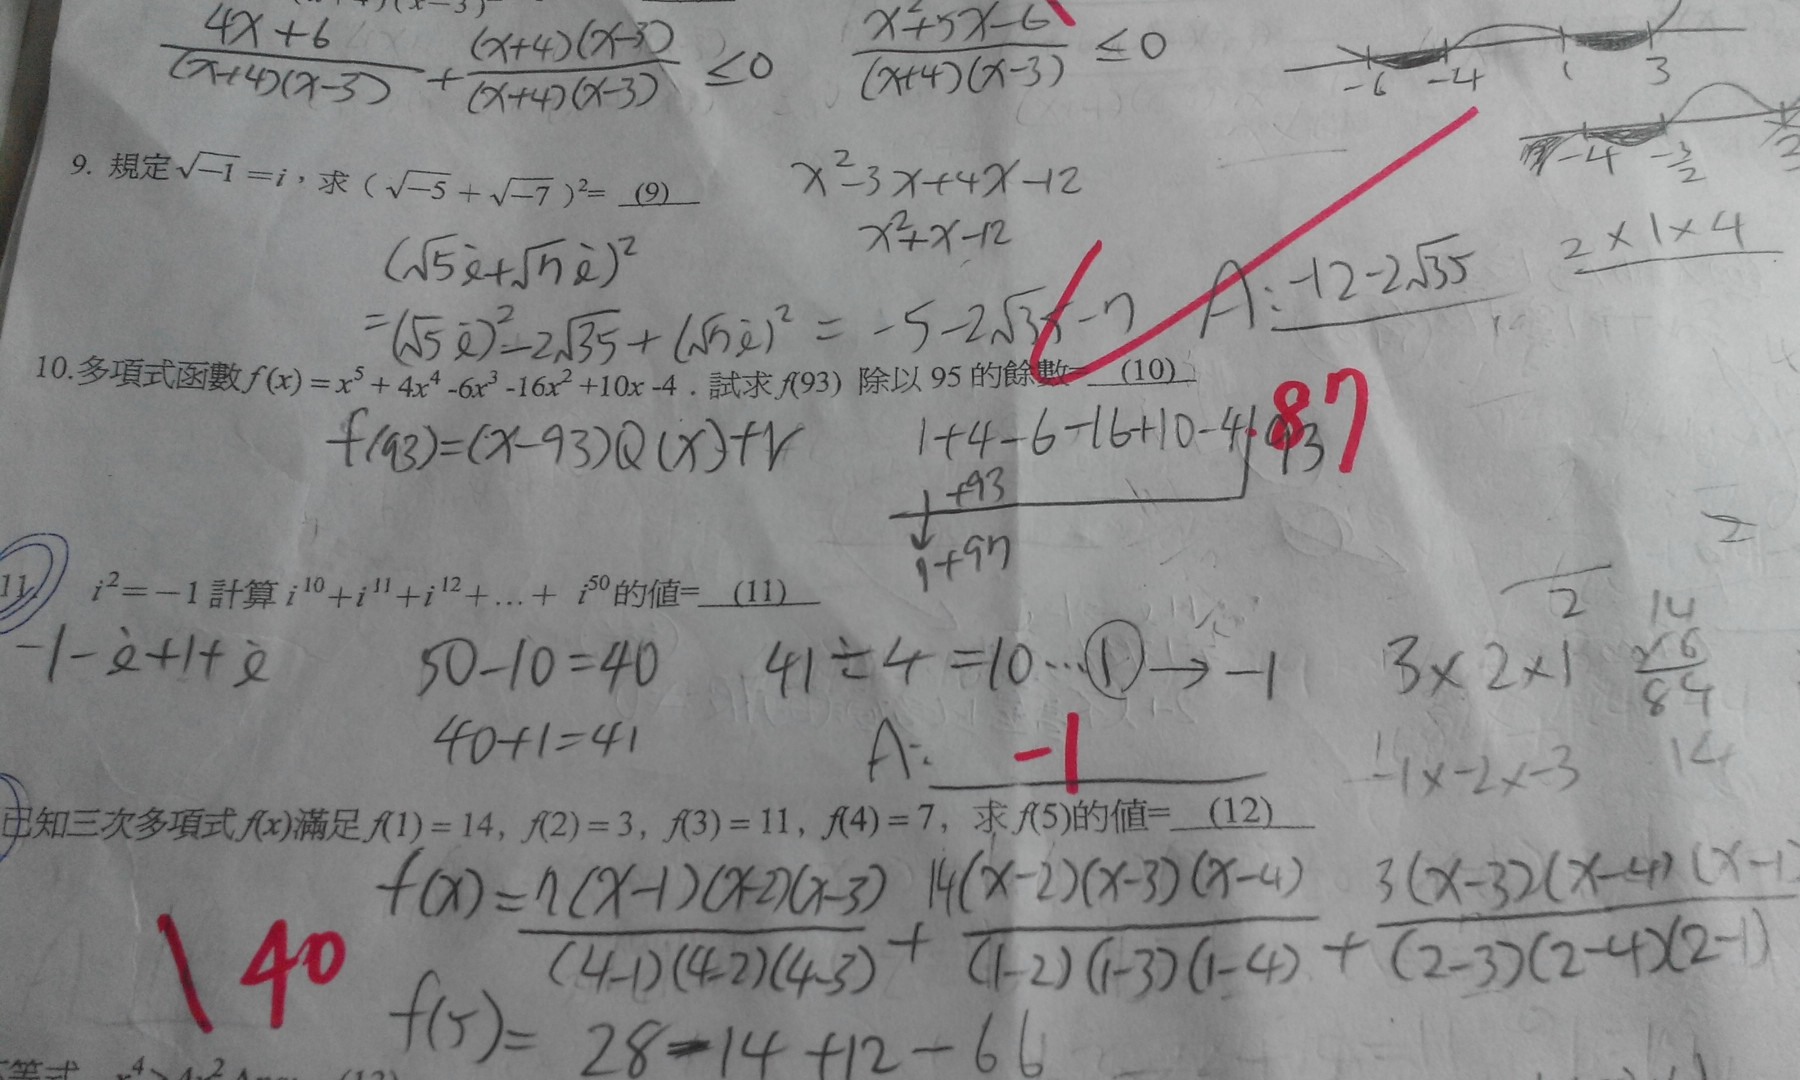 4x+6/(x+4)(x-3) + (x+4)(x-3)/(x+4)(x-3) ≤0
x²+5x-6/(x+4)(x-3) ≤0
-6 -4 1 3
-4 -3/2 2
9. 規定√-1=i，求（√-5+√-7）²= (9)
x²-3x+4x-12
x²+x-12
(√5i+√7i)²
=(√5i)²-2√35+(√7i)² = -5-2√35-7
A:-12-2√35
2×1×4
10.多項式函數f(x)=x⁵+4x⁴-6x³-16x²+10x-4．試求f(93) 除以95的餘數= (10)
87
f(93)=(x-93)Q(x)+r
1+4-6-16+10-4 93
+93
1+97
2
11. i²=-1計算i¹⁰+i¹¹+i¹²+...+ i⁵⁰的值= (11)
-1-i+1+i
50-10=40
41÷4=10...①→-1
40+1=41
A: -1
3×2×1
14
×6
84
-1×-2×-3
14
已知三次多項式f(x)滿足f(1)=14, f(2)=3, f(3)=11, f(4)=7, 求f(5)的值= (12)
f(x)=7(x-1)(x-2)(x-3)/(4-1)(4-2)(4-3) + 14(x-2)(x-3)(x-4)/(1-2)(1-3)(1-4) + 3(x-3)(x-4)(x-1)/(2-3)(2-4)(2-1)
40
f(5)= 28-14+12-66